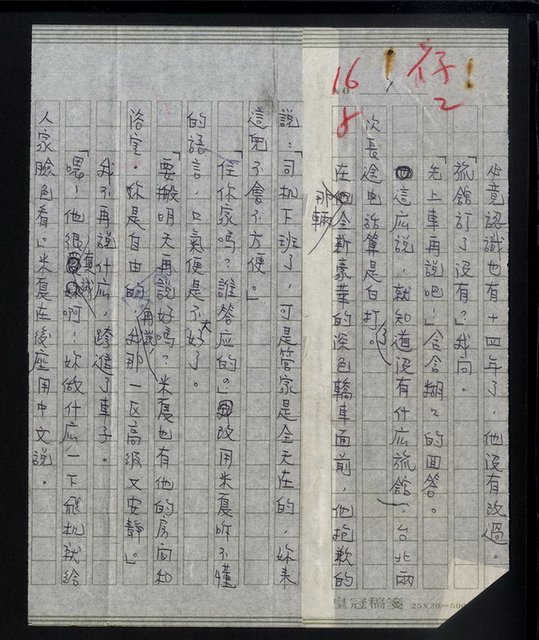 16
8
!
存
!
2
必竟認識也有十四年了，他沒有改過。
「旅館訂了沒有？」我问。
「先上車再說吧！」含含糊々的回答。
這広說，就知道沒有什広旅館，台北兩
次長途电話算是白打。
在那輛全新豪華的深色轎車面前，他抱歉的
說：「司机下班了，可是管家是全天在的，妳来
這兒不會不方便。」
「住你家嗎？誰答应的。」改用米夏听不懂
的語言，口氣便是不大好了。
「要搬明天再說好嗎？米夏也有他的房间和
浴室。妳是自由的，再說我那一区高級又安靜。」
我不再說什広，跨進了車子。
「喂，他很真誠啊，妳做什広一下飛机就給
人家臉色看。」米夏在後座用中文說。
皇冠稿箋 25×20＝500